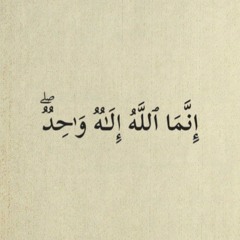 إِنَّمَا ٱللَّهُ إِلَـٰهٌ وَٰحِدٌ ۖ